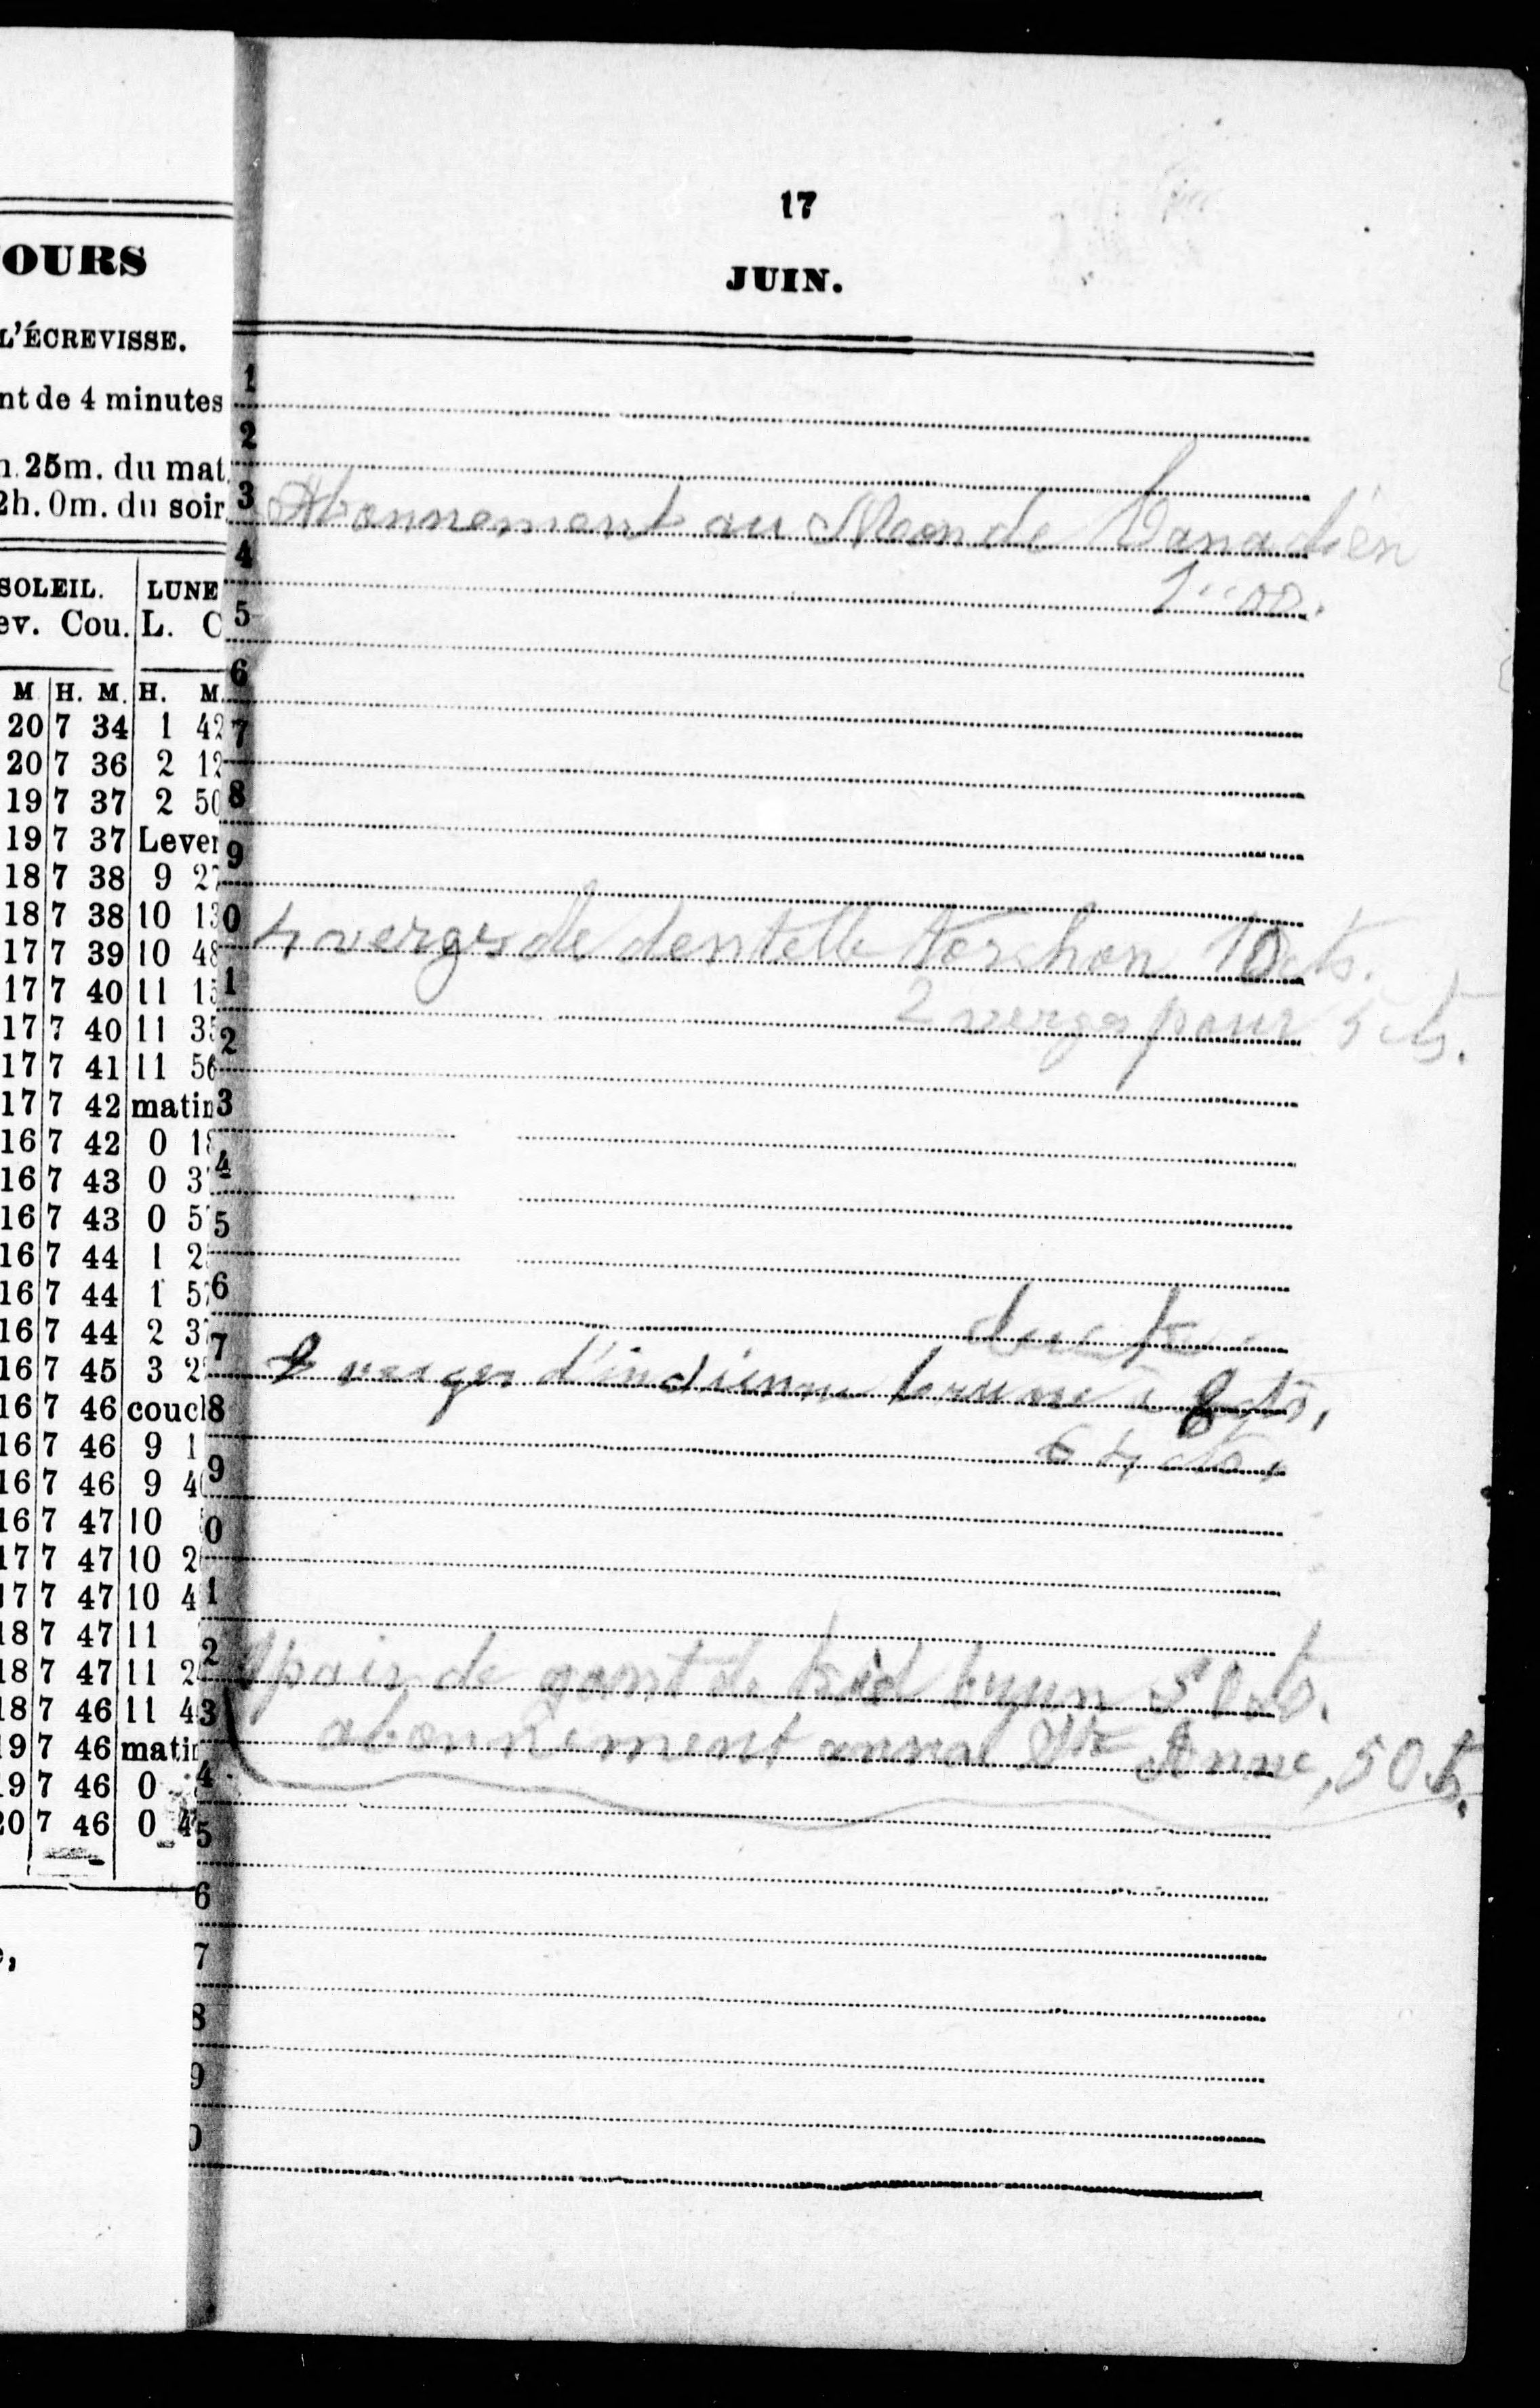 OURS
L'ÉCREVISSE.
nt de 4 minutes
25m. du mat
2h. 0m. du soir
SOLEIL. LUNE
ev. Cou. L. C
M H. M. H. M.
20 7 34 1 42
20 7 36 2 12
19 7 37 2 50
19 7 37 Lever
18 7 38 9 27
18 7 38 10 13
17 7 39 10 48
17 7 40 11 15
17 7 40 11 35
17 7 41 11 56
17 7 42 matin
16 7 42 0 18
16 7 43 0 3
16 7 43 0 5
16 7 44 1 2
16 7 44 1 5
16 7 44 2 3
16 7 45 3 2
16 7 46 couc
16 7 46 9 1
16 7 46 9 4
16 7 47 10
17 7 47 10 2
17 7 47 10 4
18 7 47 11
18 7 47 11 2
18 7 46 11 4
19 7 46 matin
19 7 46 0
20 7 46 0 4
17
JUIN.
1
2
3 Abonnement au Monde Canadien
4 1"00.
5
6
7
8
9
0 4 verges de dentelle torchon 10 cts.
1 2 verges pour 5 cts.
2
3
4
5
6 duck
7 8 verges d'indienne brune à 8 cts,
8 64 cts,
9
0
1
2 1 pair de gant de kid 50 cts.
3 abonnement Ste Anne, 50 cts.
4
5
6
7
8
9
0